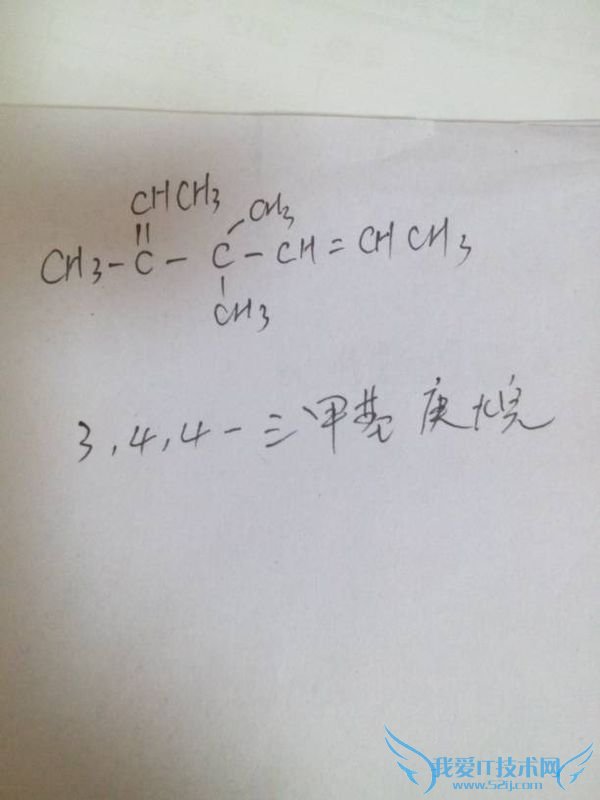 CHCH3 CH3
CH3-C-C-CH=CHCH3
CH3
3,4,4-三甲基庚烷
我爱IT技术网
www.52ij.com